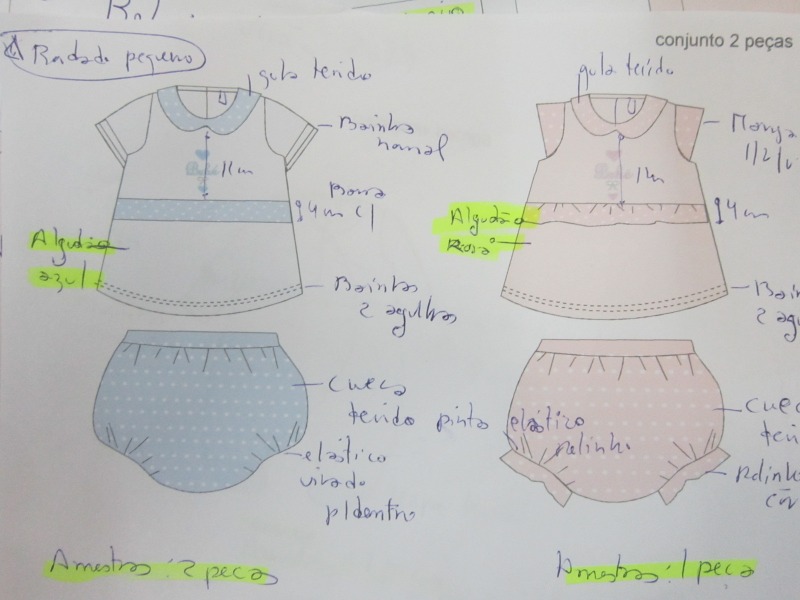 conjunto 2 peças
Rodado pequeno
gola tecido
Bainha
normal
11cm
4cm
Algodão
azul
Bainha
2 agulhas
cueca
tecido pinta
elástico
virado
p/dentro
Amostras: 2 peças
gola tecido
Manga
11cm
4cm
Algodão
Rosa
Bain
2 agu
cuec
teci
elástico
folinho
Amostras: 1 peça